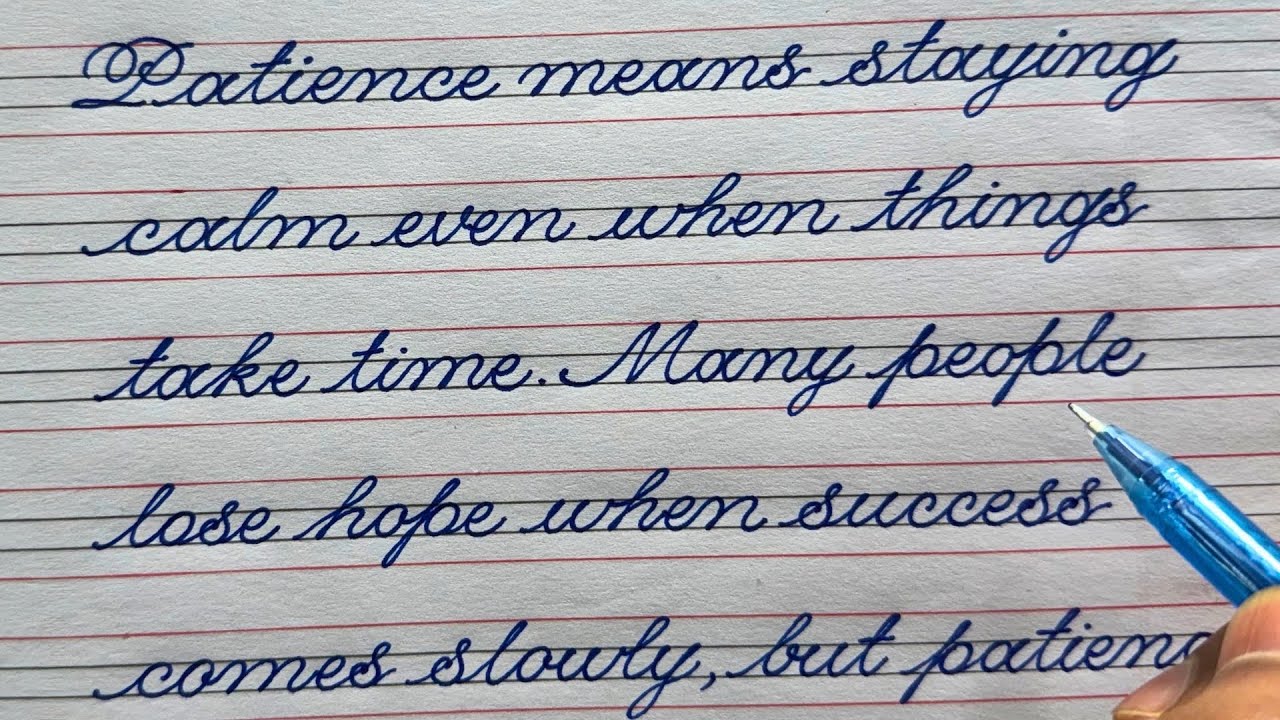 Patience means staying
calm even when things
take time. Many people
lose hope when success
comes slowly, but patienc